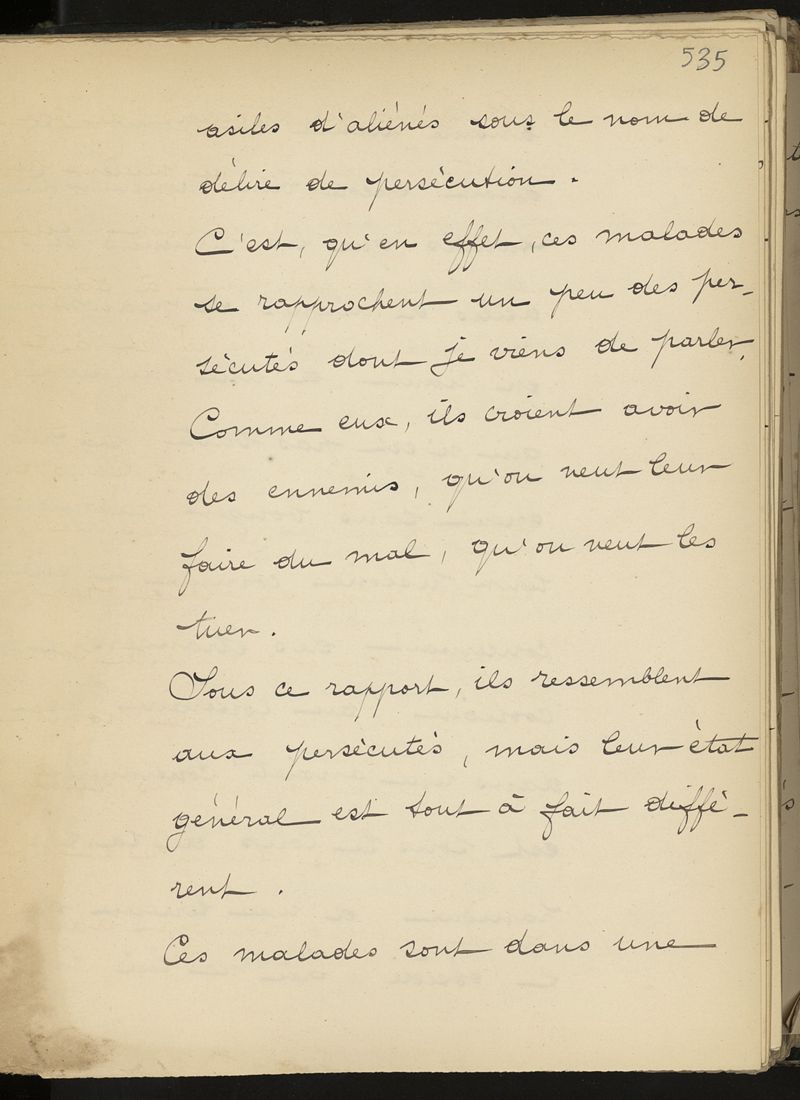 535
asiles d'aliénés sous le nom de
délire de persécution.
C'est, qu'en effet, ces malades
se rapprochent un peu des per-
sécutés dont je viens de parler.
Comme eux, ils croient avoir
des ennemis, qu'on veut leur
faire du mal, qu'on veut les
tuer.
Sous ce rapport, ils ressemblent
aux persécutés, mais leur état
général est tout à fait diffé-
rent.
Ces malades sont dans une